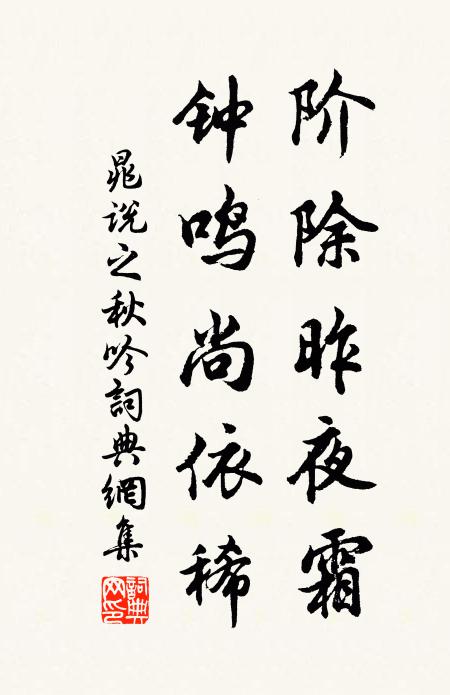 阶除昨夜霜
钟鸣尚依稀
晁说之秋吟詞典網集
詞典
网印